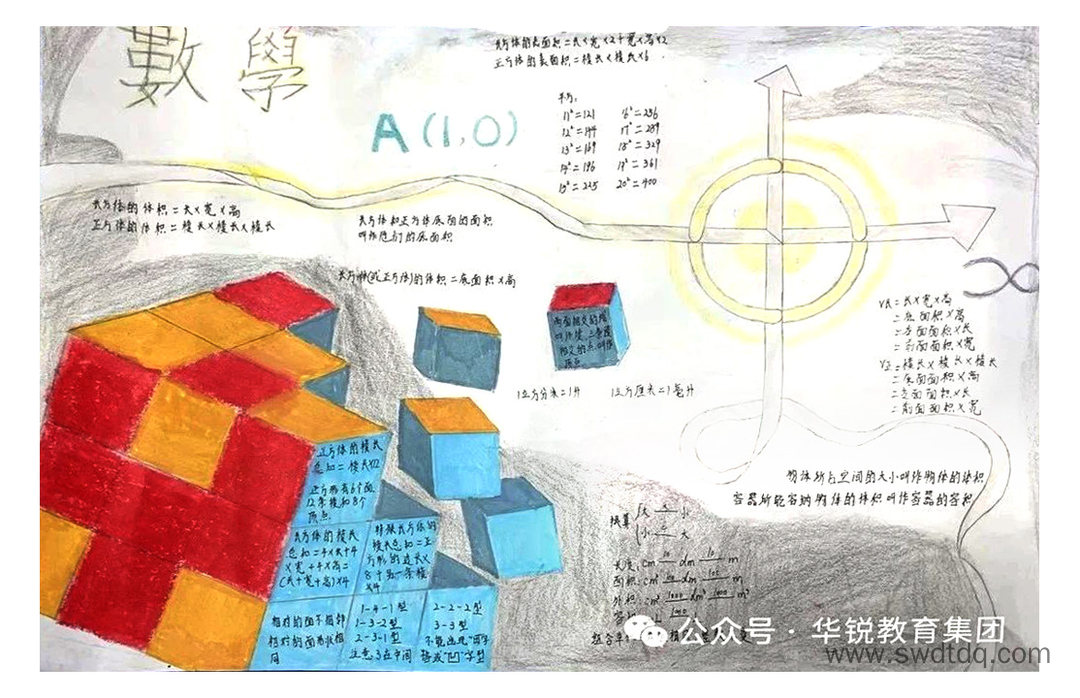 數學
长方体的表面积=长×宽×2+宽×高×2
正方体的表面积=棱长×棱长×6
A(1,0)
平方:
11²=121 16²=256
12²=144 17²=289
13²=169 18²=329
14²=196 19²=361
15²=225 20²=400
长方体的体积=长×宽×高
正方体的体积=棱长×棱长×棱长
长方体和正方体底面的面积
叫作它们的底面积
长方体(或正方体)的体积=底面积×高
两面相交的棱
叫作棱,三条棱
相交的点叫作
顶点
1立方分米=1升 1立方厘米=1毫升
V长=长×宽×高
=底面积×高
=左面面积×长
=前面面积×宽
V正=棱长×棱长×棱长
=底面面积×高
=左面面积×长
=前面面积×宽
物体所占空间的大小叫作物体的体积
容器所能容纳物体的体积叫作容器的容积
正方体的棱长
总和=棱长×12
正方体有6个面
12条棱和8个
顶点
长方体的棱长
总和=4×长+4
×宽+4×高=
(长+宽+高)×4
特殊长方体的
棱长总和=正
方形的边长×
8+另一条棱
×4
相对的面不相邻
相对的面形状相
同
1-4-1型
1-3-2型
2-3-1型
注意3在中间
2-2-2型
3-3型
不能出现"田"字
换算 大 小
小 大
长度: cm 10 dm 10 m
面积: cm² 100 dm 100 m
体积: cm³ 1000 dm³ 1000 m³
公众号·华锐教育集团
www.swdtdq.com